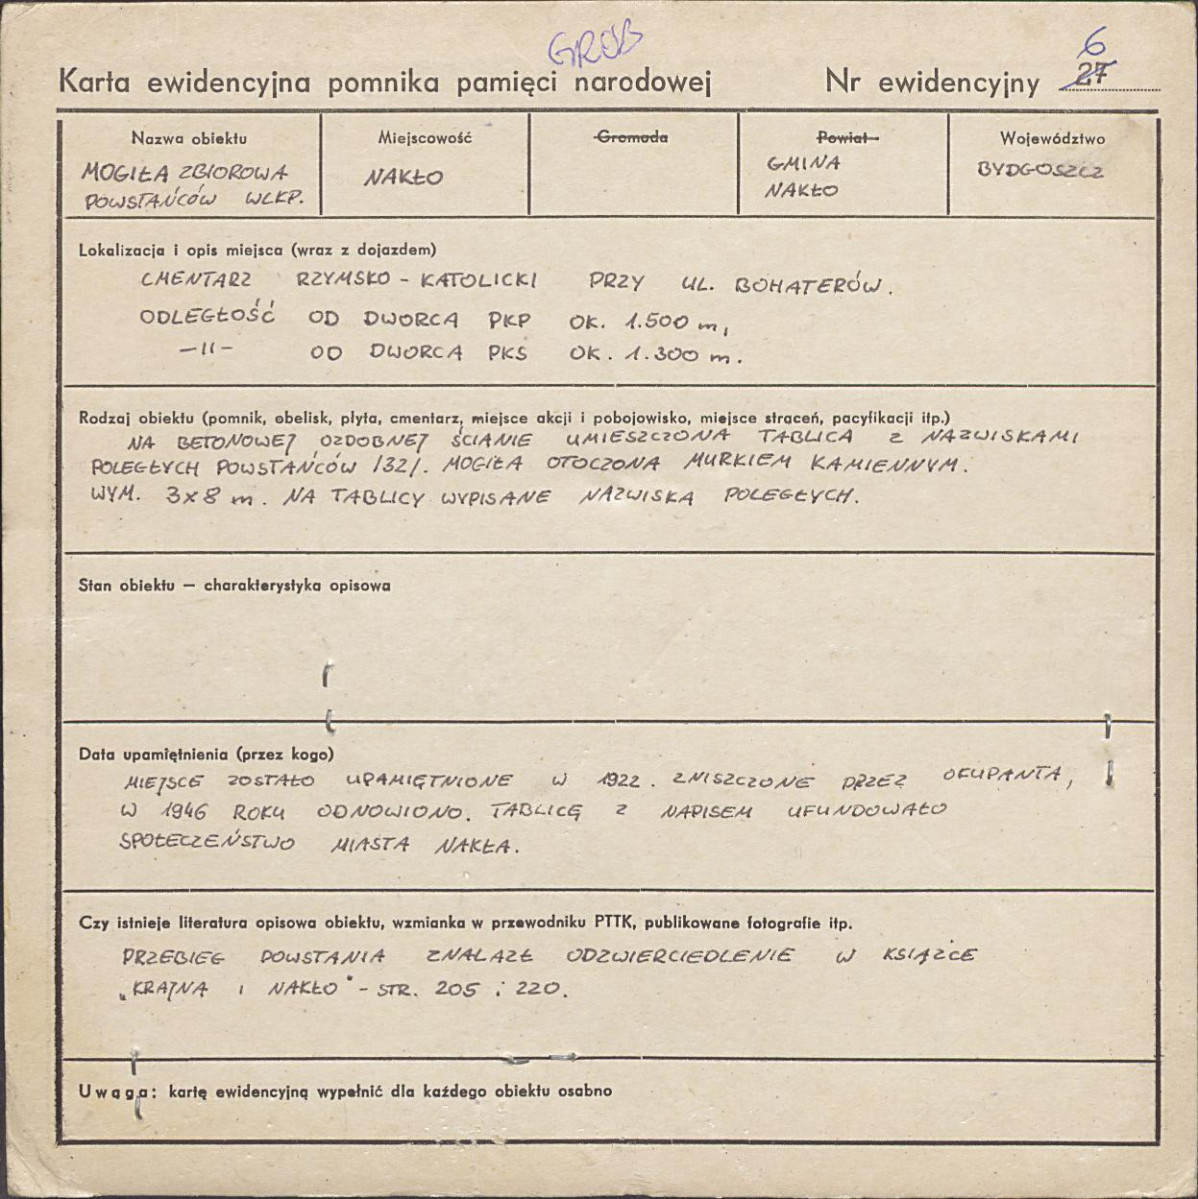 GRÓB
Karta ewidencyjna pomnika pamięci narodowej
Nr ewidencyjny 27 6
Nazwa obiektu
MOGIŁA ZBIOROWA
POWSTAŃCÓW WLKP.
Miejscowość
NAKŁO
Gromada
Powiat
GMINA
NAKŁO
Województwo
BYDGOSZCZ
Lokalizacja i opis miejsca (wraz z dojazdem)
CMENTARZ RZYMSKO - KATOLICKI PRZY UL. BOHATERÓW.
ODLEGŁOŚĆ OD DWORCA PKP OK. 1.500 m,
—11— OD DWORCA PKS OK. 1.300 m.
Rodzaj obiektu (pomnik, obelisk, płyta, cmentarz, miejsce akcji i pobojowisko, miejsce straceń, pacyfikacji itp.)
NA BETONOWEJ OZDOBNEJ ŚCIANIE UMIESZCZONA TABLICA Z NAZWISKAMI
POLEGŁYCH POWSTAŃCÓW /32/. MOGIŁA OTOCZONA MURKIEM KAMIENNYM.
WYM. 3x8 m. NA TABLICY WYPISANE NAZWISKA POLEGŁYCH.
Stan obiektu — charakterystyka opisowa
Data upamiętnienia (przez kogo)
MIEJSCE ZOSTAŁO UPAMIĘTNIONE W 1922. ZNISZCZONE PRZEZ OKUPANTA,
W 1946 ROKU ODNOWIONO. TABLICĘ Z NAPISEM UFUNDOWAŁO
SPOŁECZEŃSTWO MIASTA NAKŁA.
Czy istnieje literatura opisowa obiektu, wzmianka w przewodniku PTTK, publikowane fotografie itp.
PRZEBIEG POWSTANIA ZNALAZŁ ODZWIERCIEDLENIE W KSIĄŻCE
„KRAJNA I NAKŁO" - STR. 205 i 220.
Uwaga: kartę ewidencyjną wypełnić dla każdego obiektu osobno